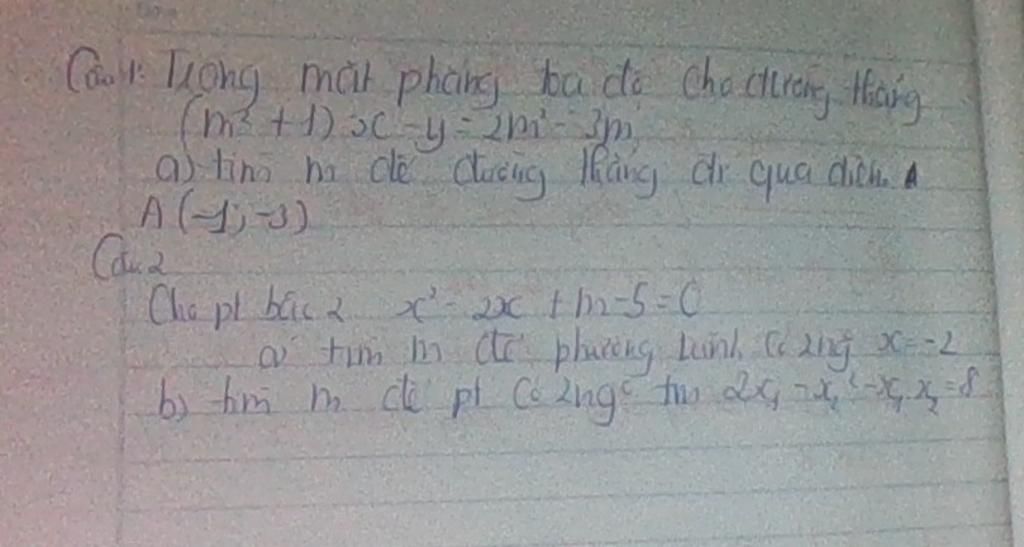 Câu 1: Trong mặt phẳng toạ độ cho đường thẳng
(m² + 1) x - y = 2m² - 3m
a) tìm m để đường thẳng đi qua điểm A
A (-1; -3)
Câu 2
Cho pt bậc 2 x² - 2x + m - 5 = 0
a) tìm m để phương trình có 2ng x = -2
b) tìm m để pt có 2ng